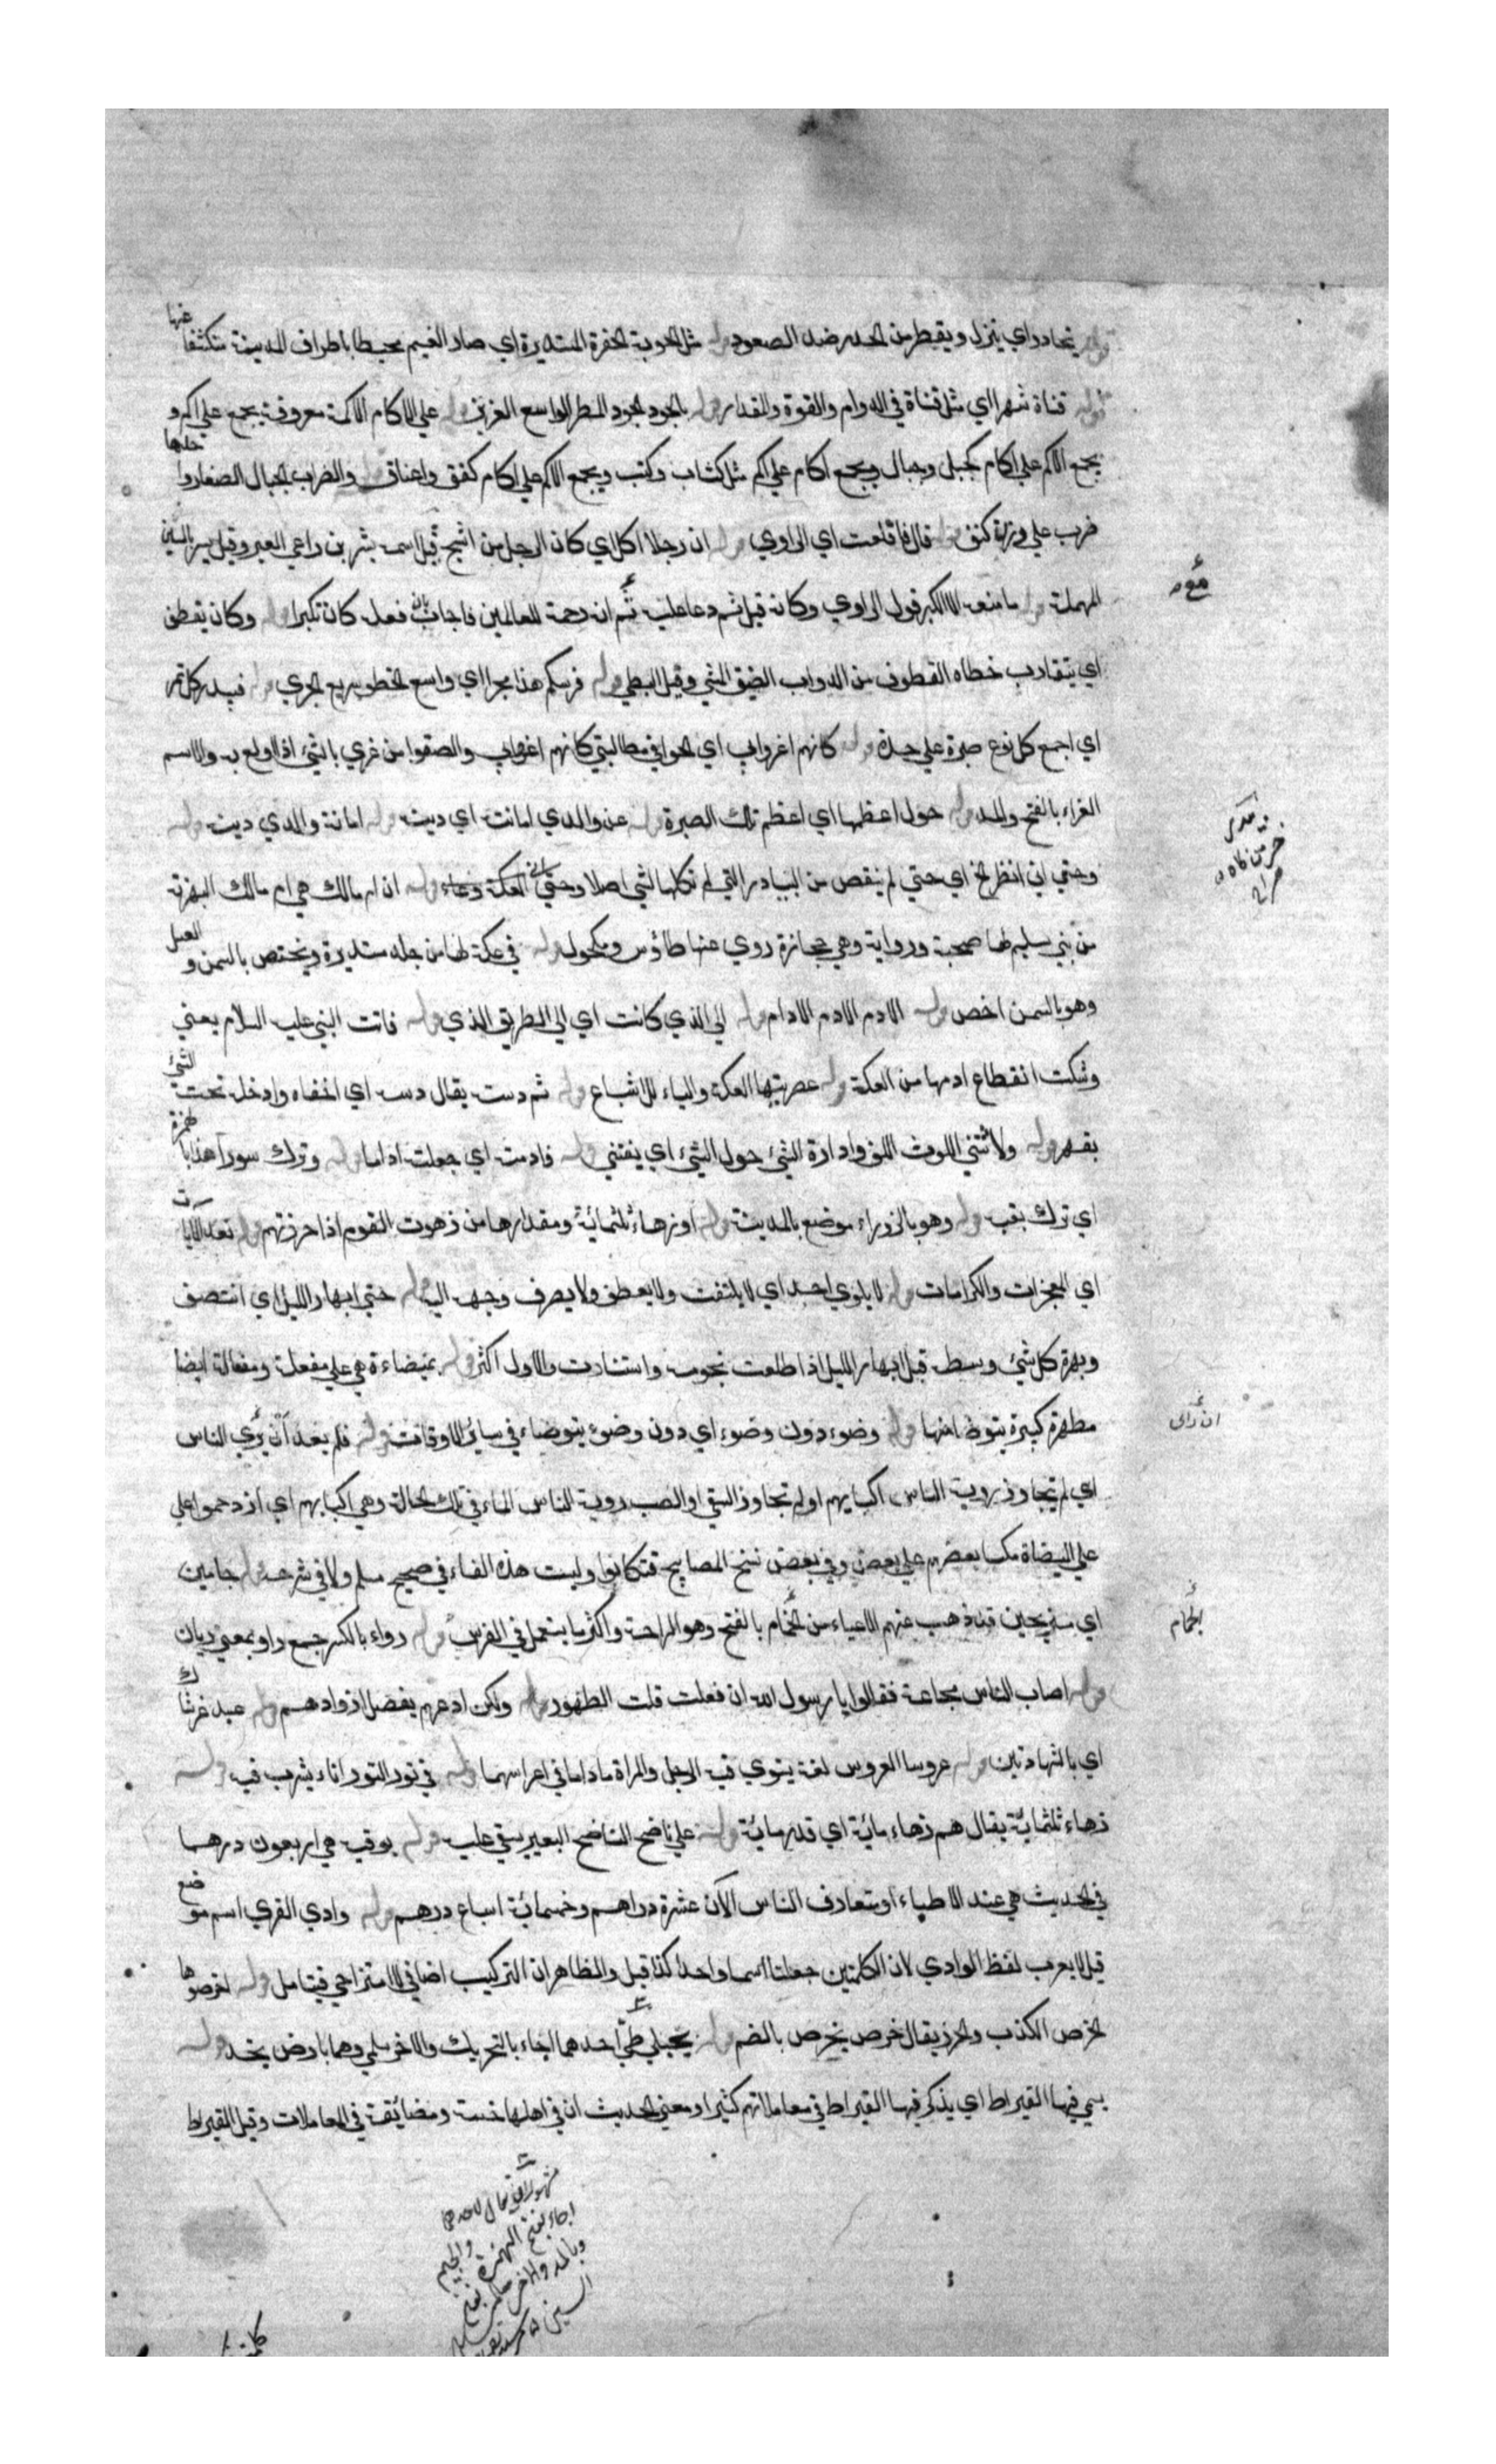 قوله يتحادر اي ينزل ويقطر من الحدر ضد الصعود قوله مثل الجوبة الحفرة المستديرة اي صار الغيم محيطا باطراف المدينة منكشفا عنها
قوله قناة شهرا اي مثل قناة في الدوام والقوة والمقدار قوله بالجود الجود المطر الواسع الغزير قوله علي الاكام الاكمة معروفة يجمع علي اكم و
يجمع الاكم علي اكام كجبل وجبال ويجمع اكام علي اكم مثل كتاب وكتب ويجمع الاكم علي اكام كعنق واعناق والظراب الجبال الصغار واحدها
ظرب علي وزن كتف قوله قال فاقلعت اي الراوي قوله ان رجلا اكل اي كان الرجل من اشجع قيل اسمه بشر بن راعي العير وقيل بسر بالسين
المهملة قوله ما منعه الا الكبر قول الراوي وكانه قيل لم دعا عليه ثم انه رحمة للعالمين فاجاب بان فعله كان تكبرا قوله وكان يقطف
اي يتقارب خطاه القطوف من الدواب الضيق المشي وقيل البطي قوله فرسكم هذا بحرا اي واسع الخطو سريع الجري قوله فبيدر كل تمر
اي اجمع كل نوع صبرة علي حدة قوله كانهم اغروا بي اي الحوا في مطالبتي كانهم اغروا بي والصقوا من غري بالشئ اذا اولع به والاسم
الغراء بالفتح والمد قوله حول اعظمها اي اعظم تلك الصبرة قوله عن والدي امانته اي دينه قوله امانة والدي دينه قوله
وحتي اني انظر الخ اي حتي لم ينقص من البيادر التي لم نكلها الشي اصلا وحتي اني العكة وعاء قوله ان ام مالك هي ام مالك البهزية
من بني سليم لها صحبة ورواية وهي حجازية روي عنها طاؤس ومكحول قوله في عكة لها من جلد مستديرة ويختص بالسمن والعسل
وهو بالسمن اخص قوله الادم الادم الادام قوله الي الذي كانت اي الي الطريق الذي قوله فاتت النبي عليه السلام يعني
وشكت انقطاع ادمها من العكة قوله عصرتيها العكة والياء للاشباع قوله ثم دسته يقال دسه اي اخفاه وادخله تحت الشئ
بقهر قوله ولاثتني اللوث اللف وادارة الشئ حول الشئ اي يفتني قوله فادمته اي جعلته اداما قوله وترك سورا هذا بالهمزة
اي ترك بقيه قوله وهو بالزوراء موضع بالمدينة قوله او زهاء ثلثمائة ومقدارها من زهوت القوم اذا حزرتهم قوله نعد الايات
اي المعجزات والكرامات قوله لا يلوي احد اي لا يلتفت ولا يعطف ولا يصرف وجهه اليه قوله حتي ابهار الليل اي انتصف
وبهرة كل شئ وسطه قيل ابهار الليل اذا طلعت نجومه واستنارت والاول اكثر قوله بميضاءة هي علي مفعلة ومفعالة ايضا
مطهرة كبيرة يتوضا منها قوله وضوء دون وضوء اي دون وضوء يتوضاء في سائر الاوقات قوله فلم يعد ان رأي الناس
اي لم يتجاوز رؤية الناس اكبابهم او لم تجاوز السقي او الصب رؤية الناس الماء في تلك الحالة وهي اكبابهم اي ازدحموا علي
علي الميضاة مكبا بعضهم علي بعض وفي بعض نسخ المصابيح فتكابوا وليست هذه الفاء في صحيح مسلم ولا في شرحه قوله جامين
اي مستريحين قد ذهب عنهم الاعياء من الجمام بالفتح وهو الراحة واكثر ما يستعمل في الفرس قوله رواء بالكسر جمع راو بمعني ريان
قوله اصاب الناس مجاعة فقالوا يا رسول الله ان فعلت قلت الظهور قوله ولكن ادعهم بفضل ازوادهم قوله عبد غير شاك
اي بالشهادتين قوله عروسا العروس لغة يستوي فيه الرجل والمراة ما داما في اعراسهما قوله في تور التور اناء يشرب فيه قوله
زهاء ثلثمائة يقال هم زهاء مائة اي قدر مائة قوله علي ناضح الناضح البعير يسقي عليه قوله بوقية هي اربعون درهما
في الحديث هي عند الاطباء او متعارف الناس الآن عشرة دراهم وخمسمائة اسباع درهم قوله وادي القري اسم موضع
قيل لا يعرب لفظ الوادي لان الكلمتين جعلتا اسما واحدا كذا قيل والظاهر ان التركيب اضافي لا امتزاجي فيتامل قوله اخرصوها
الخرص الكذب والحزر يقال خرص يخرص بالضم قوله بجبلي طي احدهما اجاء بالتحريك والاخر سلمي وهما بارض نجد قوله
يسمي فيها القيراط اي يذكر فيها القيراط في معاملاتهم كثيرا ومعني الحديث ان في اهلها خسة ومضائقة في المعاملات وقيل القيراط
ان رأي
الجمام
اجاء بفتح الهمزة والجيم
وبالمد والاخر سلمي بفتح
السين